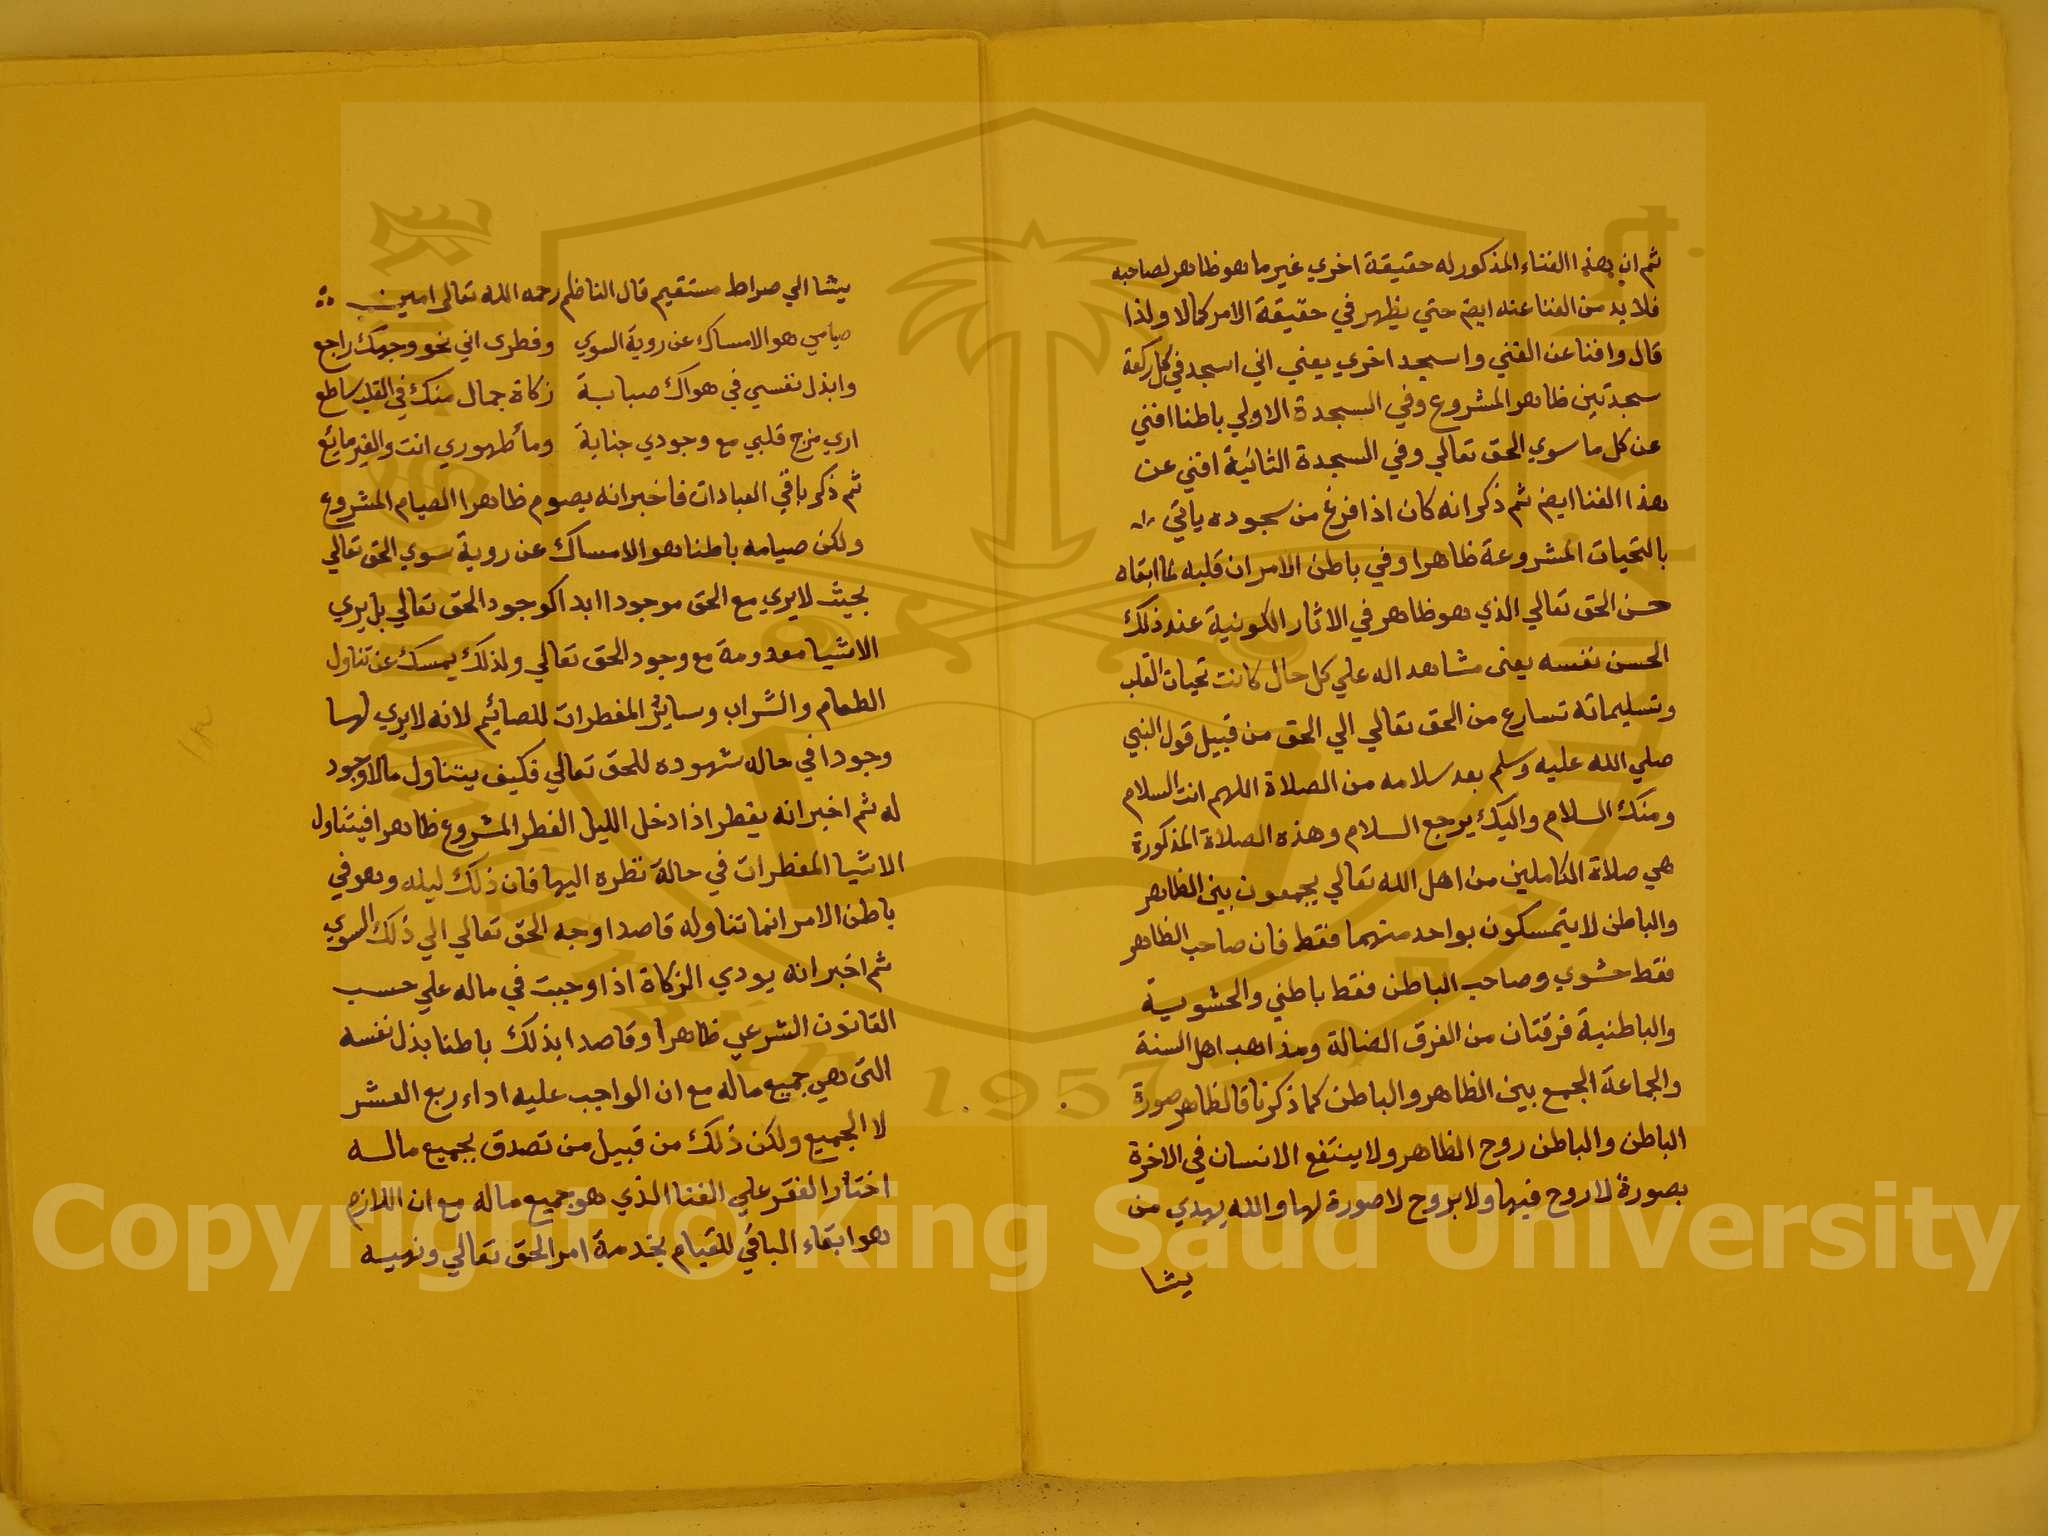 ثم ان هذا الفناء المذكور له حقيقة اخري غير ما هو ظاهر لصاحبه
فلا بد من الفنا عنه ايضا حتي يظهر في حقيقة الامر كمالا ولذا
قال وافنا عن الفني واسجد اخري يعني اني اسجد في كل ركعة
سجدتين ظاهر المشروع وفي السجدة الاولي باطنا افني
عن كل ما سوي الحق تعالي وفي السجدة الثانية افني عن
هذا الفنا ايضا ثم ذكر انه كان اذا فرغ من سجوده ياتي
بالتحيات المشروعة ظاهرا وفي باطن الامر ان قلبه لما ابقاه
حسن الحق تعالي الذي هو ظاهر في الاثار الكونية عند ذلك
الحسن نفسه يعني مشاهد اله علي كل حال كانت تحيات القلب
وتسليماته تسارع من الحق تعالي الي الحق من قبيل قول النبي
صلي الله عليه وسلم بعد سلامه من الصلاة اللهم انت السلام
ومنك السلام واليك يرجع السلام وهذه الصلاة المذكورة
هي صلاة الكاملين من اهل الله تعالي يجمعون بين الظاهر
والباطن لا يتمسكون بواحد منهما فقط فان صاحب الظاهر
فقط حشوي وصاحب الباطن فقط باطني والحشوية
والباطنية فرقتان من الفرق الضالة ومذاهب اهل السنة
والجماعة الجمع بين الظاهر والباطن كما ذكرنا فالظاهر صورة
الباطن والباطن روح الظاهر ولا ينتفع الانسان في الاخرة
بصورة لا روح فيها ولا بروح لا صورة لها والله يهدي من
يشا
يشا الي صراط مستقيم قال الناظم رحمه الله تعالي امين
صيامي هو الامساك عن روية السوي وفطرى اني نحو وجهك راجع
وابذل نفسي في هواك صبابة زكاة جمال منك في القلب ساطع
اري مزج قلبي مع وجودي جنابة وماْ طهوري انت والغير مائع
ثم ذكر باقي العبادات فاخبر انه يصوم ظاهرا الصيام المشروع
ولكن صيامه باطنا هو الامساك عن روية سوي الحق تعالي
بحيث لا يري مع الحق موجودا ابدا كوجود الحق تعالي بل يري
الاشيا معدومة مع وجود الحق تعالي ولذلك يمسك عن تناول
الطعام والشراب وسائر المفطرات للصائم لانه لا يري لها
وجودا في حاله شهوده للحق تعالي فكيف يتناول ما لا وجود
له ثم اخبر انه يفطر اذا دخل الليل الفطر المشروع ظاهرا فيتناول
الاشيا المفطرات في حالة نظره اليها فان ذلك ليله وهو في
باطن الامر انما تناوله قاصدا وجه الحق تعالي الي ذلك السوي
ثم اخبر انه يودي الزكاة اذا وجبت في ماله علي حسب
القانون الشرعي ظاهرا وقاصدا بذلك باطنا بذل نفسه
التي هي جميع ماله مع ان الواجب عليه اداء ربع العشر
لا الجميع ولكن ذلك من قبيل من تصدق بجميع ماله
اختار الفقر علي الغنا الذي هو جميع ماله مع ان اللازم
هو ابقاء الباقي للقيام بخدمة امر الحق تعالي ونهيه
1957
Copyright © King Saud University